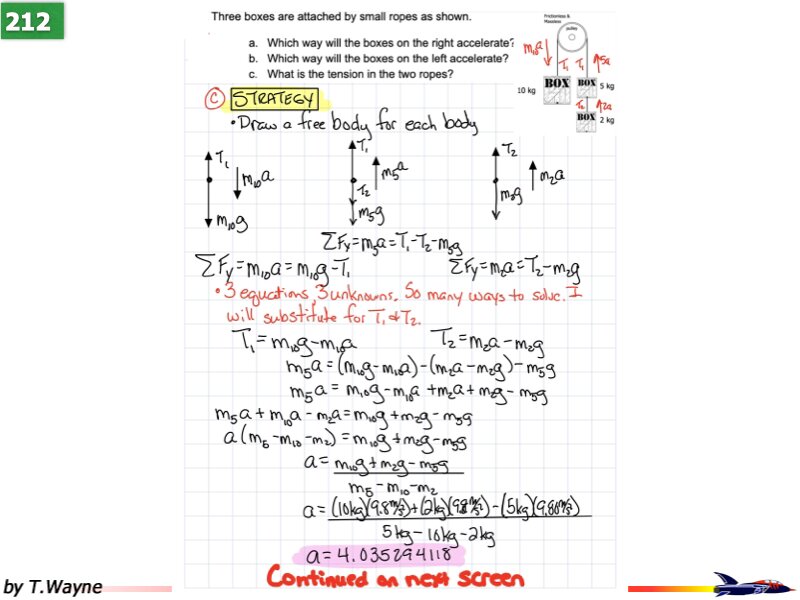 212
Three boxes are attached by small ropes as shown.
a. Which way will the boxes on the right accelerate?
b. Which way will the boxes on the left accelerate?
c. What is the tension in the two ropes?
Frictionless &
Massless
pulley
m₁₀a
T₁ T₁ 5a
10 kg BOX BOX 5 kg
T₂ 2a
BOX 2 kg
C STRATEGY
• Draw a free body for each body
T₁ m₁₀a m₁₀g
T₁ m₅a T₂ m₅g
T₂ m₂a m₂g
ΣFy=m₅a=T₁-T₂-m₅g
ΣFy=m₁₀a=m₁₀g-T₁ ΣFy=m₂a=T₂-m₂g
• 3 equations, 3 unknowns. So many ways to solve. I
will substitute for T₁ & T₂.
T₁=m₁₀g-m₁₀a T₂=m₂a-m₂g
m₅a=(m₁₀g-m₁₀a)-(m₂a-m₂g)-m₅g
m₅a=m₁₀g-m₁₀a+m₂a+m₂g-m₅g
m₅a+m₁₀a-m₂a=m₁₀g+m₂g-m₅g
a(m₅-m₁₀-m₂)=m₁₀g+m₂g-m₅g
a=m₁₀g+m₂g-m₅g
m₅-m₁₀-m₂
a=(10kg)(9.8m/s²)+(2kg)(9.8m/s²)-(5kg)(9.80m/s²)
5kg-10kg-2kg
a=4.035294118
Continued on next screen
by T.Wayne